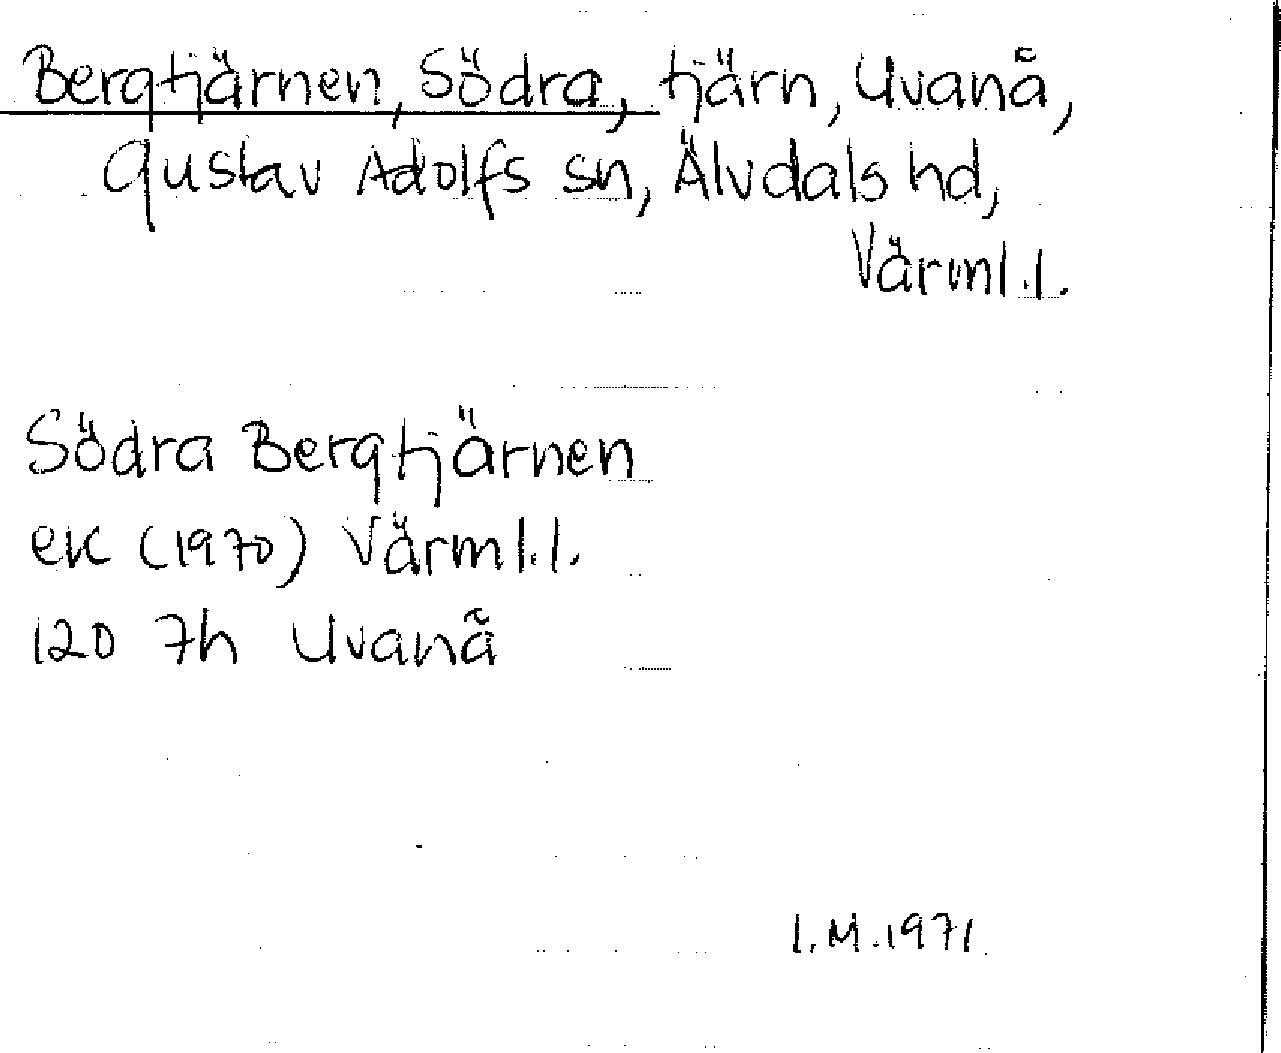 Bergtjärnen, Södra, tjärn, Uvanå,
Gustav Adolfs sn, Älvdals hd,
Värml.l.
Södra Bergtjärnen
ek (1970) Värml.l.
12D 7h Uvanå
I.M.1971